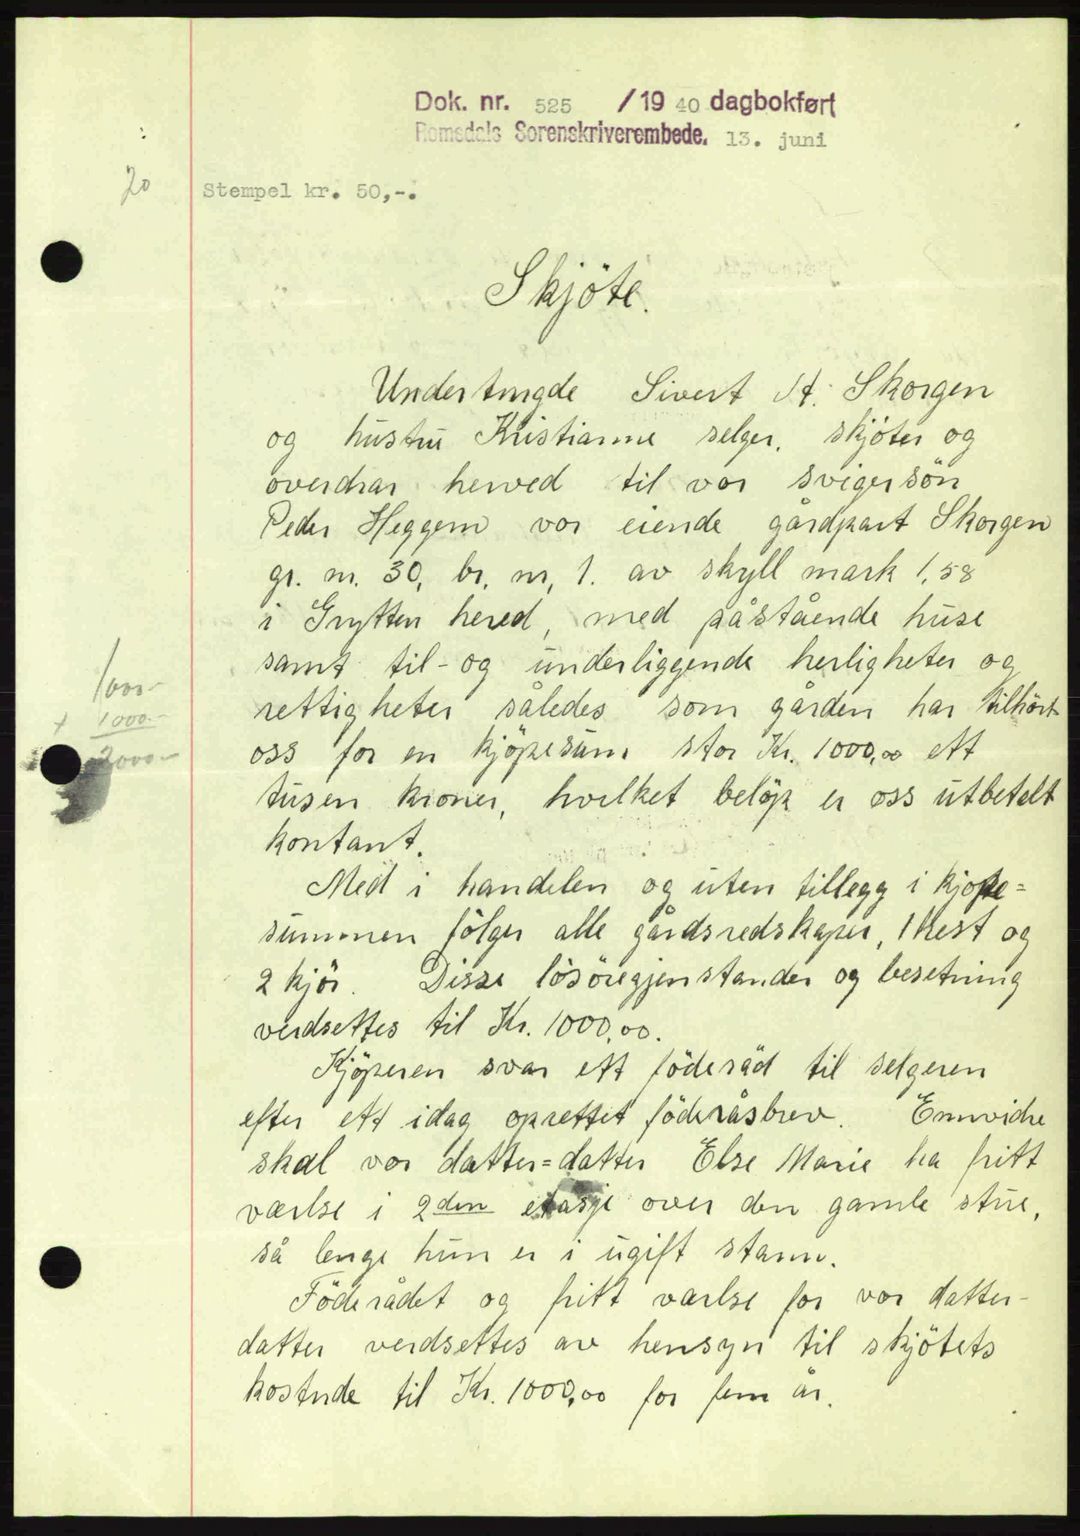 Dok. nr. 525 /1940 dagbokført
Romsdals Sorenskriverembede. 13. juni
20
Stempel kr. 50,-.
Skjöte.
Undertengde Sivert A. Skorgen
og hustru Kristianne selger, skjöter og
overdrar herved til vor svigersön
Peder Heggem vor eiende gårdpart Skorgen
gr. nr. 30, br. nr, 1. av skyll mark 1,58
i Grytten hered, med påstående huse
samt til- og underliggende herligheter og
rettigheter således som gården har tilhört
oss for en kjöpesum stor Kr. 1000,00 ett
tusen kroner, hvilket belöp er oss utbetalt
kontant.
1000-
+ 1000.-
2000-
Med i handelen og uten tillegg i kjøpe=
summen fölger alle gårdsredskaper, 1 hest og
2 kjör. Disse lösöregjenstander og besetning
verdsettes til Kr. 1000,00.
Kjöperen svar ett föderåd til selgeren
efter ett idag oprettet föderåsbrev. Ennvidre
skal vor datter=datter Else Marie ha fritt
værlse i 2den etasje over den gamle stue,
så lenge hun er i ugift stann.
Föderådet og fritt værlse for vor datter-
datter verdsettes av hensyn til skjötets
kostnde til Kr. 1000,00 for fem år.